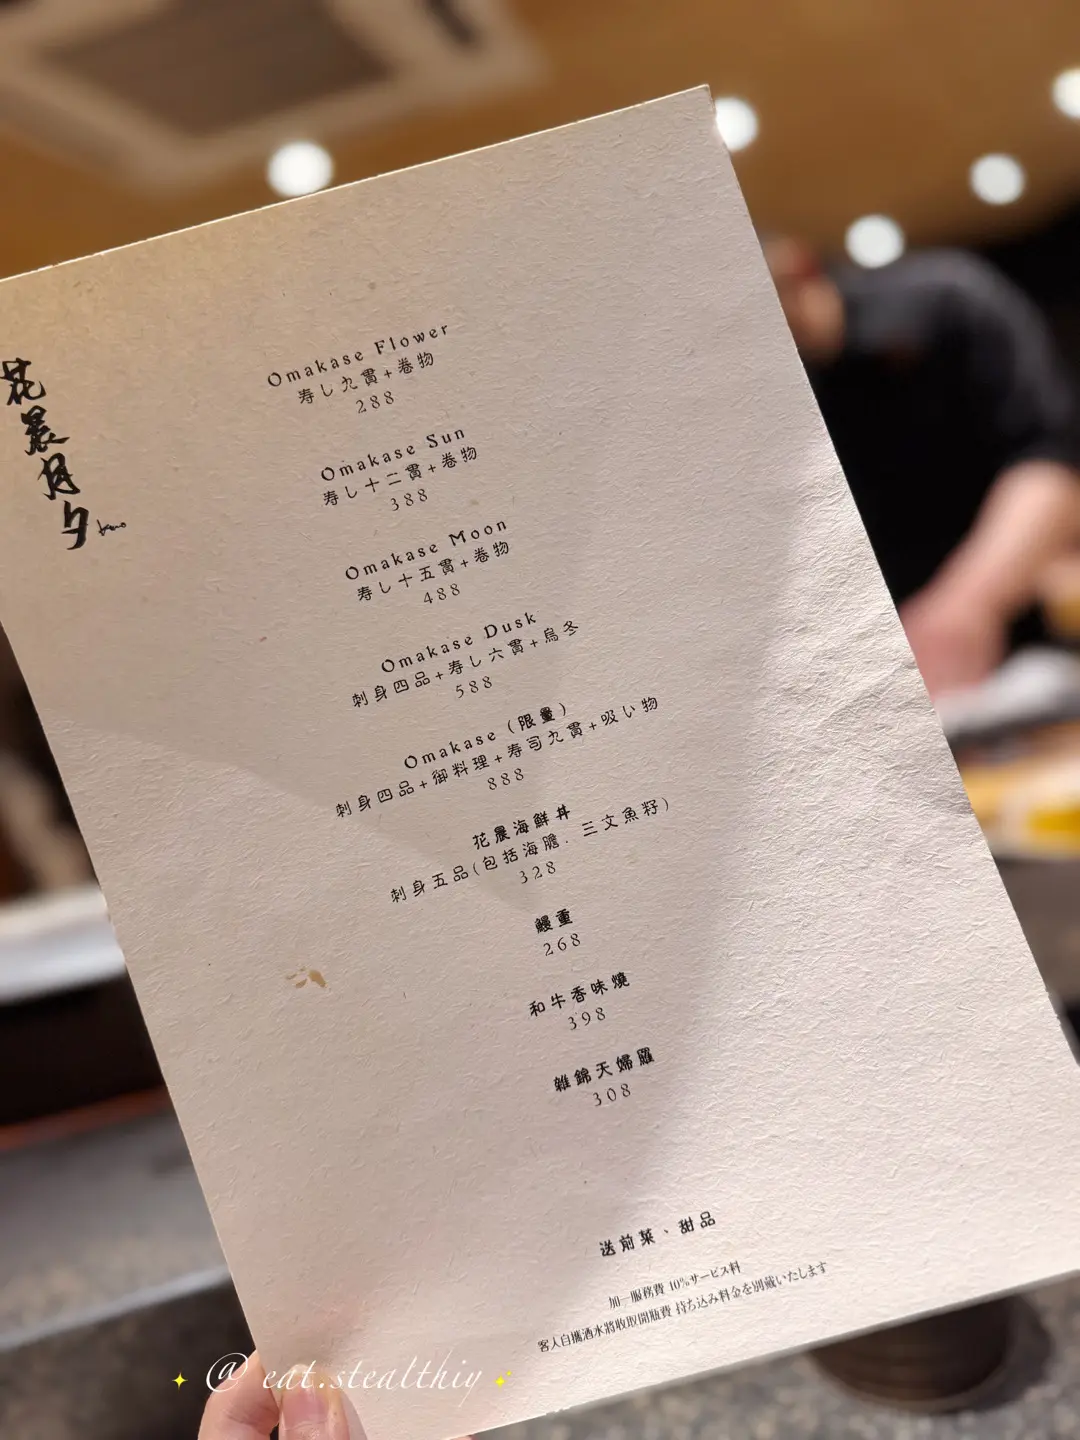 花晨月夕
Omakase Flower
寿し九貫+卷物
288
Omakase Sun
寿し十二貫+卷物
388
Omakase Moon
寿し十五貫+卷物
488
Omakase Dusk
刺身四品+寿し六貫+烏冬
588
Omakase (限量)
刺身四品+御料理+寿司九貫+吸い物
888
花晨海鮮丼
刺身五品(包括海膽．三文魚籽)
328
鰻重
268
和牛香味燒
398
雜錦天婦羅
308
送前菜、甜品
加一服務費 10%サービス料
客人自攜酒水將收取開瓶費 持ち込み料金を別戴いたします
@eat.stealthiy